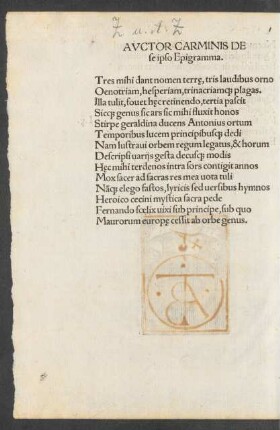 AVCTOR CARMINIS DE
se ipso Epigramma.
Tres mihi dant nomen terrę, tris laudibus orno
Oenotriam, hesperiam, trinacriamqȝ plagas.
Illa tulit, fouet hęc retinendo, tertia pascit
Sicqȝ genus sicars sic mihi fluxit honos
Stirpe geraldina ducens Antonius ortum
Temporibus lucem principibusqȝ dedi
Nam lustraui orbem regum legatus, & horum
Descripsi uarijs gesta decusqȝ modis
Hęc mihi terdenos intra sors contigit annos
Mox sacer ad sacras res mea uota tuli
Nãqȝ elego fastos, lyricis sed uersibus hymnos
Heroico cecini mystica sacra pede
Fernando fœlix uixi sub principe, sub quo
Maurorum europę cessit ab orbe genus.